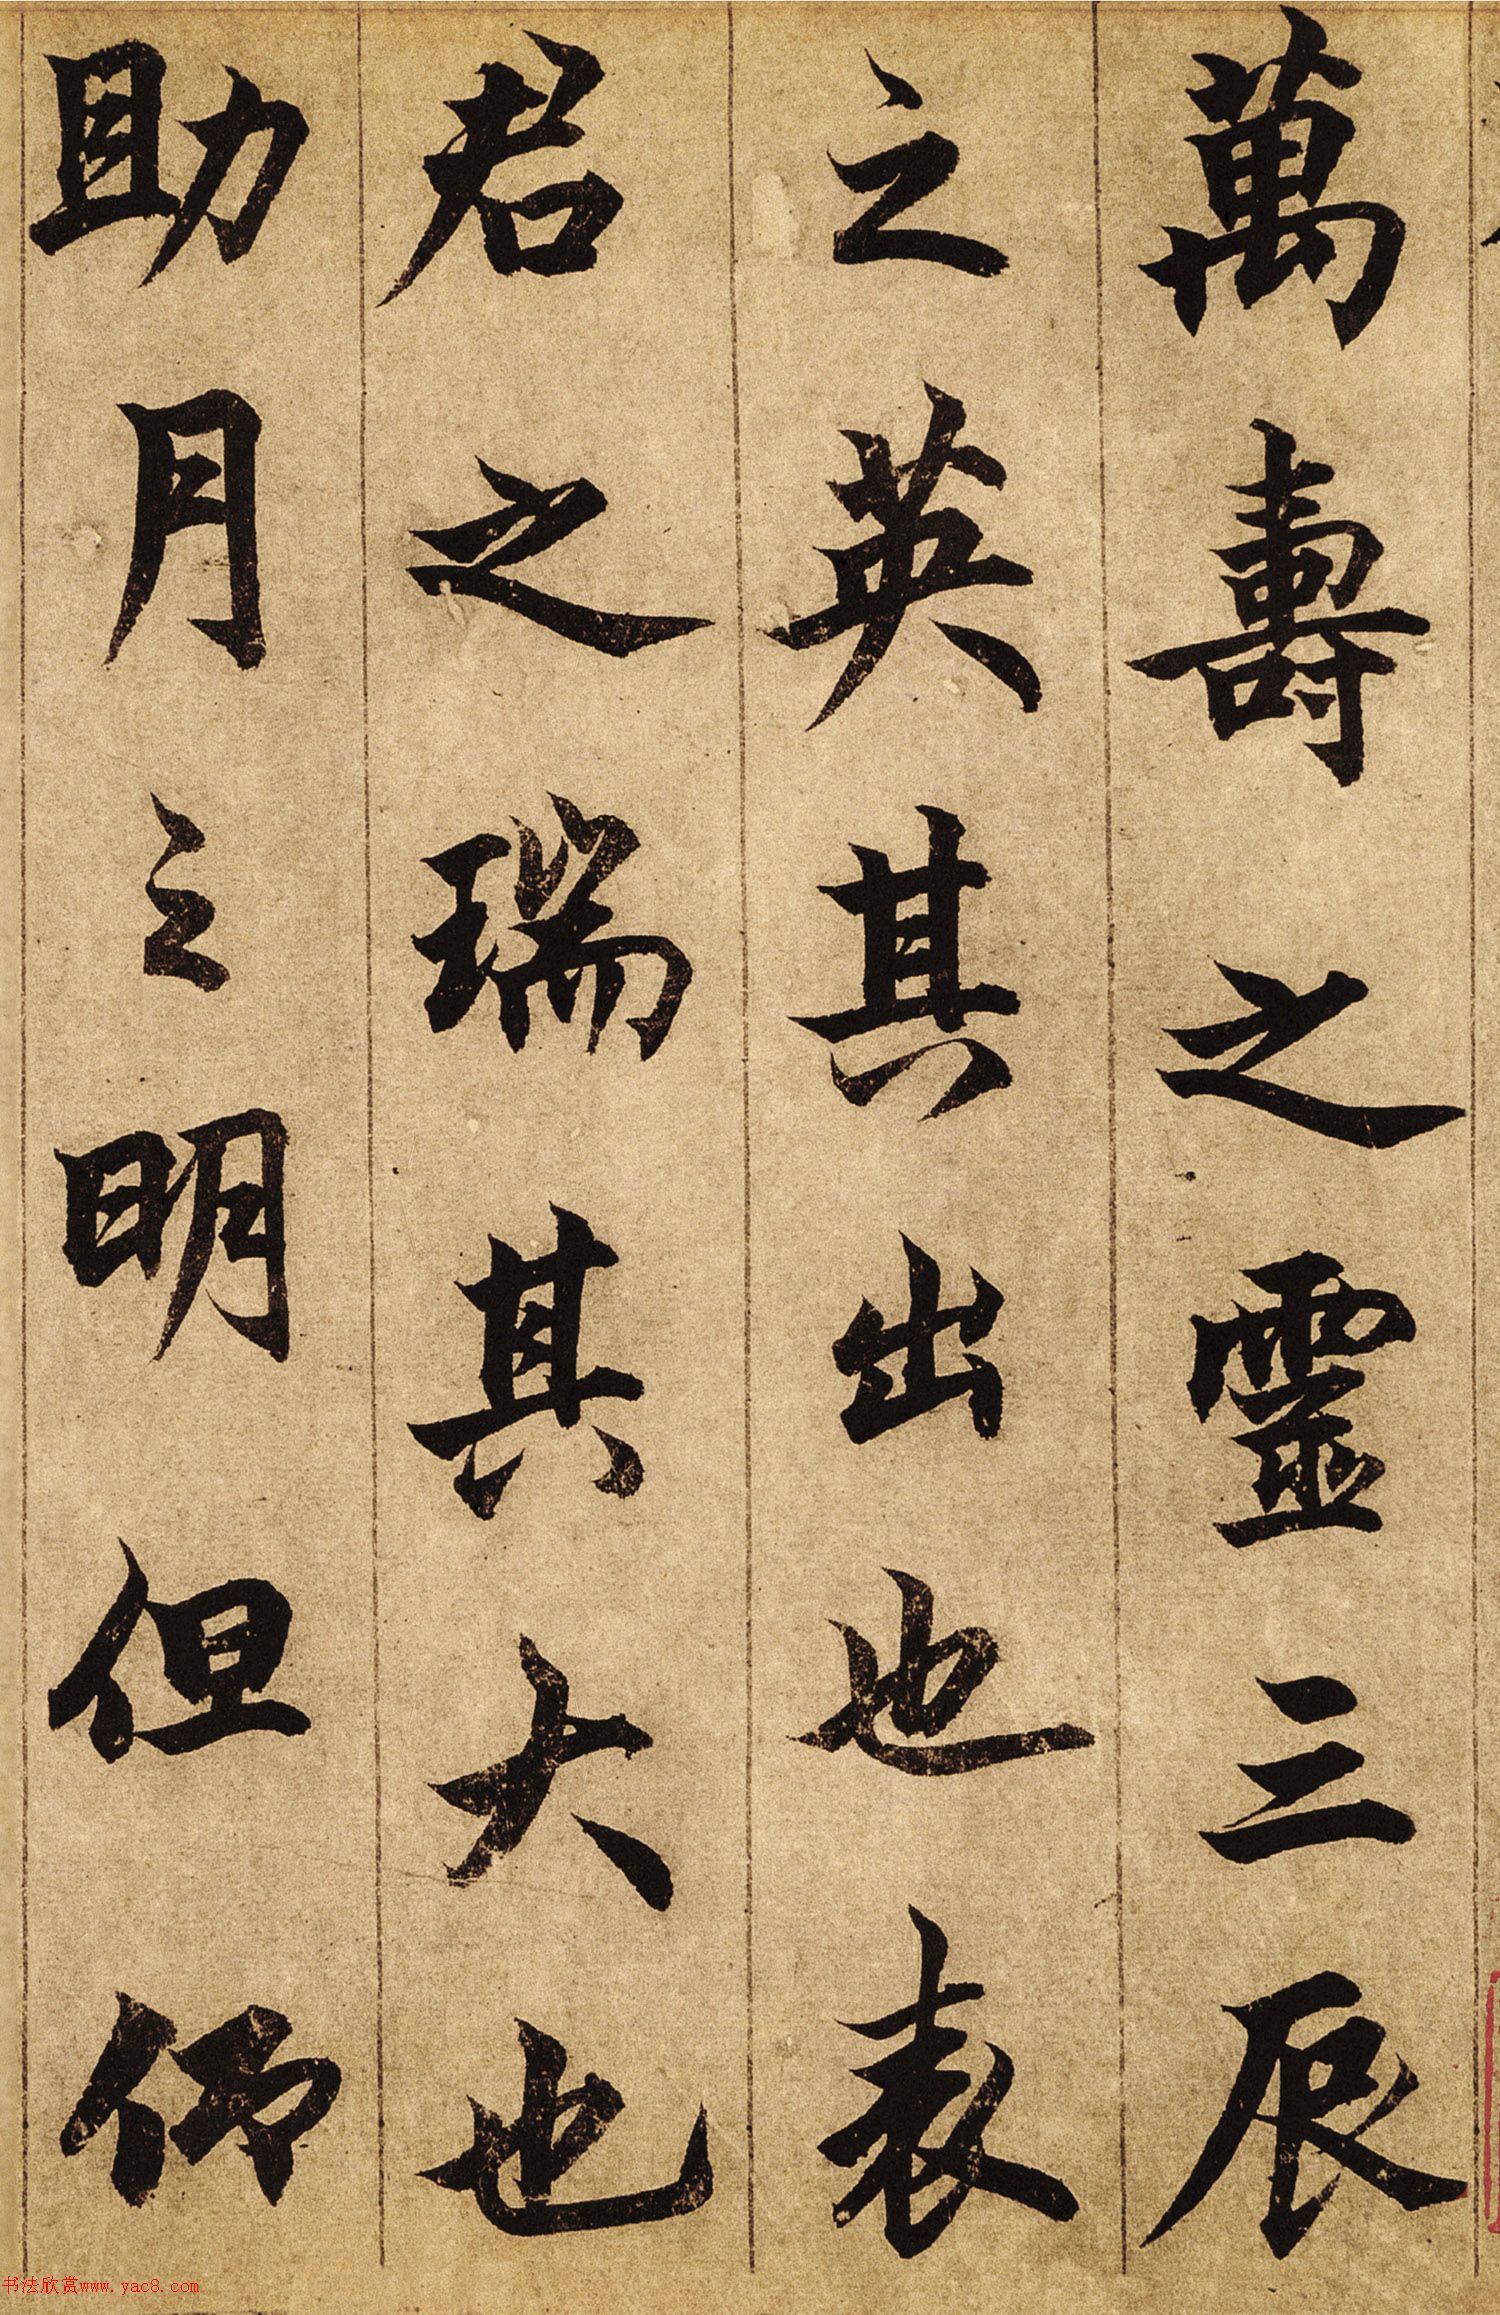 萬壽之靈三辰
之英其出也表
君之瑞其大也
助月之明但仰
书法欣赏www.yac8.com